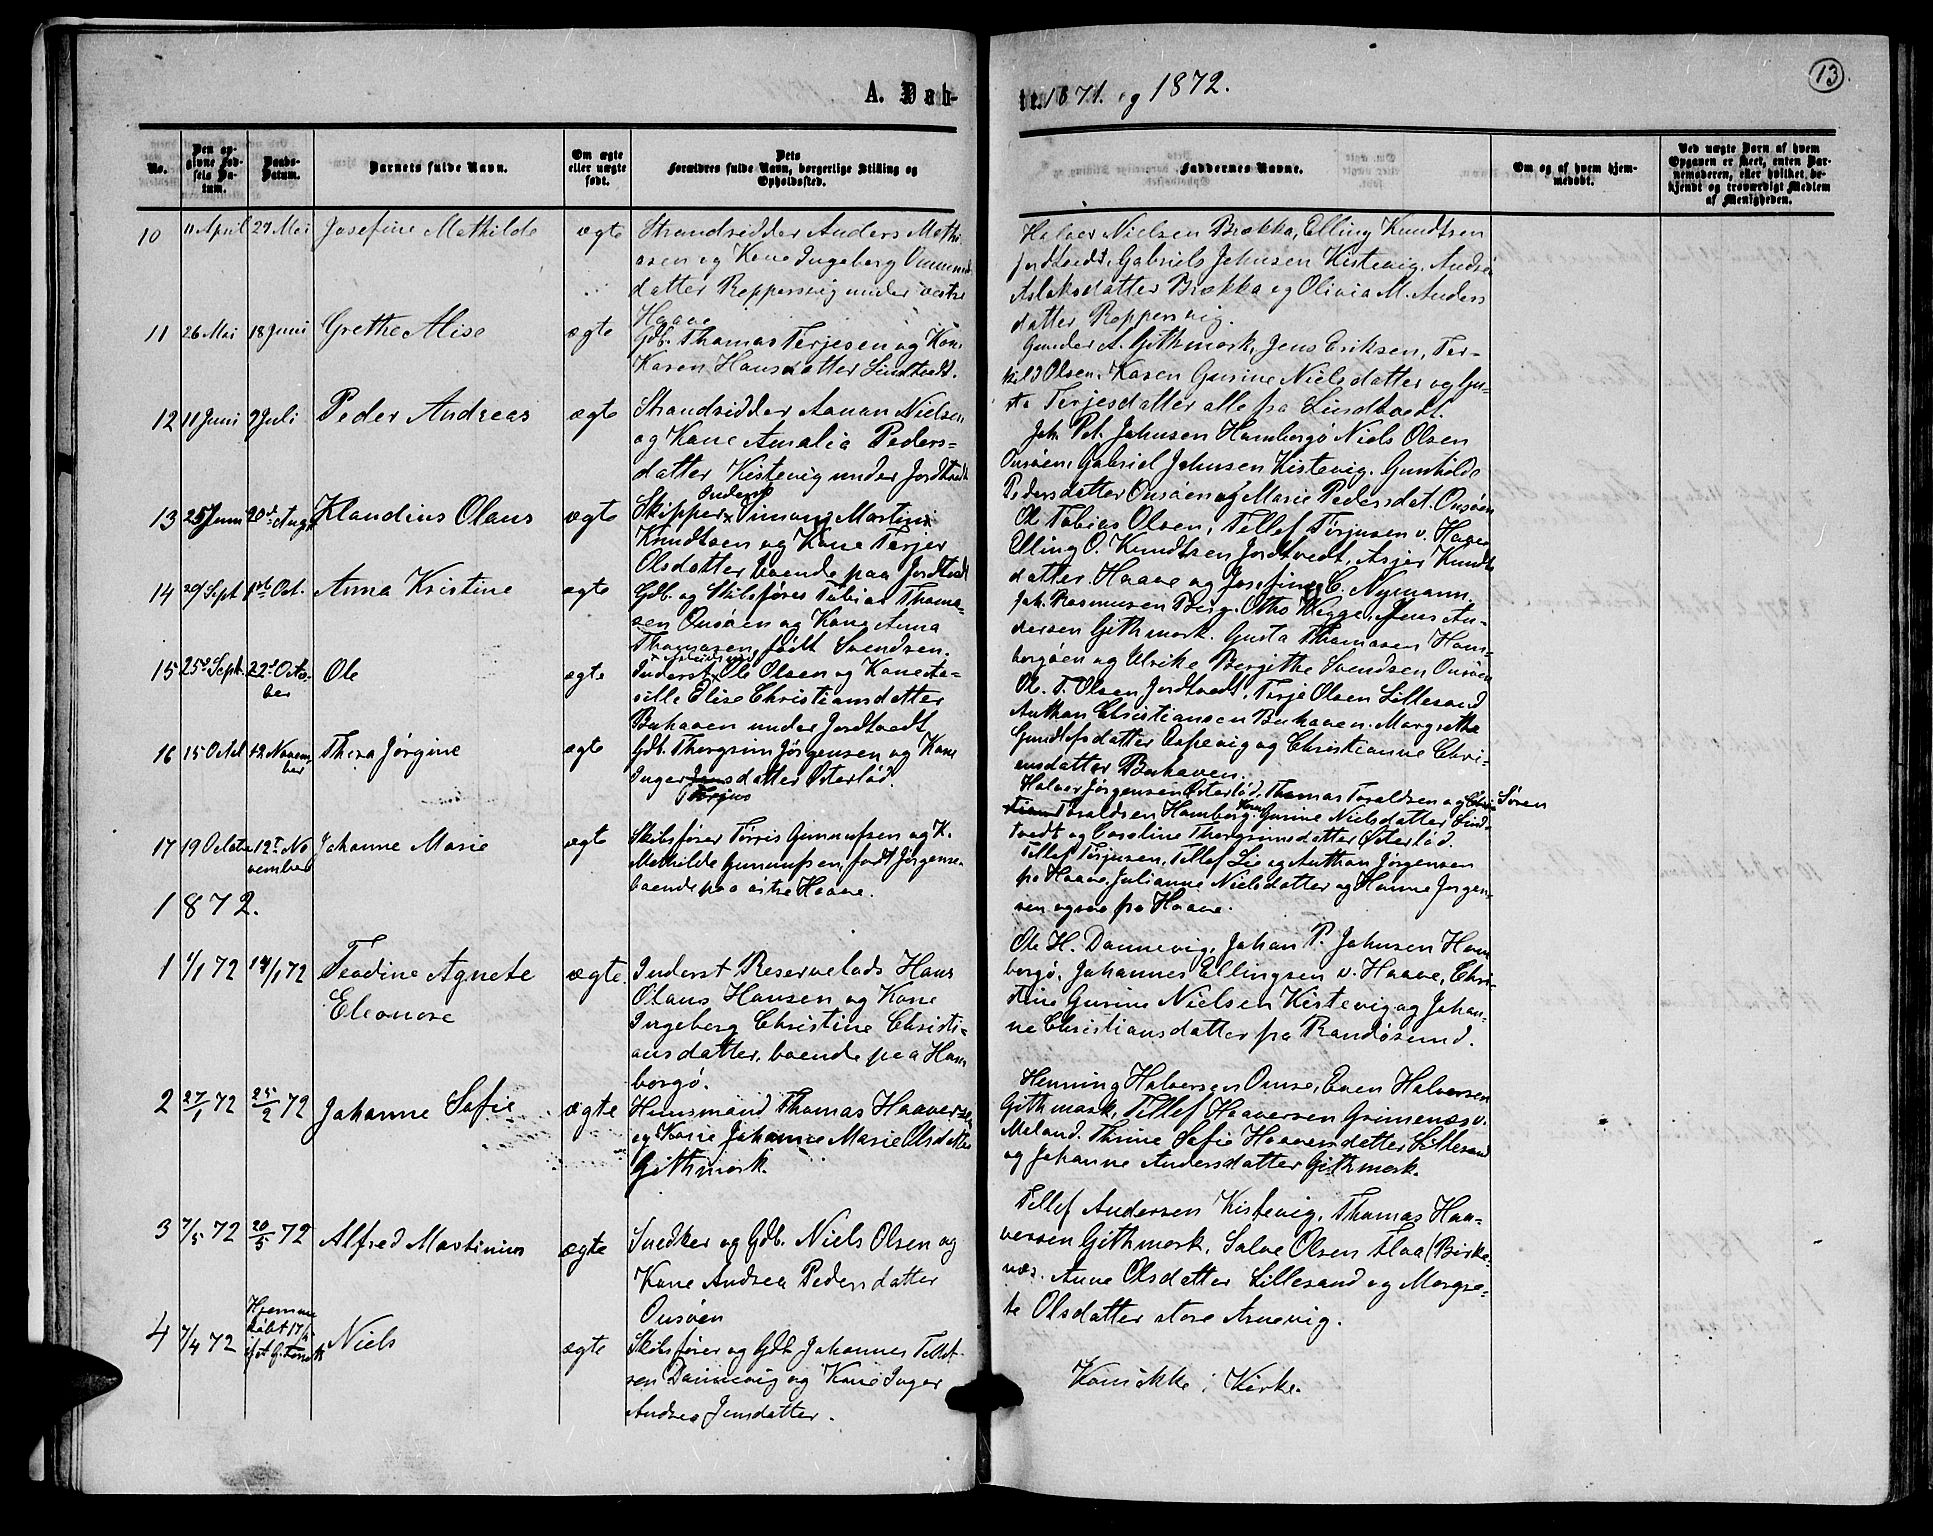 A. Døb-
te. 1871. og 1872.
13.
No.
Den op-
givne Fød-
sels Da-
tum.
Daabs-
Datum.
Barnets fulde Navn.
Om ægte
eller uægte
født.
Dets
Forældres fulde Navn, borgerlige Stilling og
Opholdssted.
Faddernes Navne.
Om og af hvem hjem-
medøbt.
Ved uægte Børn af hvem
Opgaven er skeet, enten Bar-
nemoderen, eller hvilket be-
kjendt og troværdigt Medlem
af Menigheden.
10 11 April 29 Mai Josefine Mathilde ægte Strandsidder Anders Mathi
asen og Kone Ingeborg
datter Reppersvig under vestre
Haave
Halvor Nielsen Brække, Elling Knudtsen
Jordtvedt, Gabriels Johnsen Kistevig, Andrea
Aslaksdatter Brække og Olivia M. Anders
datter Reppersvig.
11 26 Mai 18 Juni Grethe Alise ægte Gdb. Thomas Terjesen og Kone
Karen Hansdatter Lindtvedt.
Gunder A. Githmark, Jens Eriksen, Ter-
kild Olsen, Karen Gurine Nielsdatter og Gu-
sta Terjesdatter alle fra Lindtvedt.
12 11 Juni 9 Juli Peder Andreas ægte Strandsidder Aanan Nielsen
og Kone Amalia Peders-
datter Kistevig under Jordtvedt
Joh. Pet. Johnsen Hamborgø Niels Olsen
Onsøen, Gabriel Johnsen Kistevig. Gunhilde
Pedersdatter Onsøen og Marie Pedersdat. Onsøen
13 25 Juni 20de Augt Klaudius Olaus ægte Skipper Inderst Simon Martin
Knudtsen og Kone Terjer
Olsdatter boende paa Jordtvedt
Ol Tobias Olsen, Tellef Tørjusen v. Haave
Elling O. Knudtsen Jordtvedt, Asjer Knudts
datter Haave og Josefine C. Nymann.
14 20/ Sept 1ste Oct. Anna Kristine ægte Gdb. og Skibsfører Tobias Thoma-
sen Onsøen og Kone Anna
Thomasen født Svendsen.
Joh. Rasmusen Berg. Otho Kygge, Jens An-
dersen Githmark. Gusta Thomasen Ham-
borgøen og Ulrike Bergithe Svendsen Onsøen
15 25de Sept. 22de Octo-
ber Ole ægte Inderst Ole Olsen og Kone Ce-
cille Elise Christiansdatter
Buhaven under Jordtvedt
Ol. T. Olsen Jordtvedt, Terje Olsen Lillesand
Anthon Christiansen Buhaven. Margrethe
Gundlefsdatter Aspevig og Christianne Chri-
ansdatter Buhaven.
16 15 Octob 12 Novem-
ber Thera Jørgine ægte Gdb. Thorgrim Jørgensen og Kone
Inger Jensdatter Østerlid.
Torjus
Halvor Jørgensen Østerlid, Thomas Toraldsen og Søren
Toraldsen Hamborg. Gurine Nielsdatter Lind-
tvedt og Caroline Thorgrimsdatter Østerlid.
17 19 Octob 12te No-
vember Johanne Marie ægte Skibsfører Tørris Gunnufsen og K.
Mathilde Gunnufsen, født Jørgensen
boende paa østre Haave.
Tellef Tørjusen, Tellef Lie og Anthon Jørgensen
fra Haave, Julianne Nielsdatter og Hanne Jørgen-
sen ogsaa fra Haave.
1872.
1 1/1 72 14/1 72 Teodine Agnete
Eleonore ægte. Inderst Reservelods Hans
Olaus Hansen og Kone
Ingeborg Christine Christi-
ansdatter, boende paa Ham
borgø.
Ole H. Dannevig, Johan P. Johnsen Ham
borgø, Johannes Ellingsen v. Haave, Chri-
stine Gurine Nielsen Kistevig og Johan-
ne Christiansdatter fra Randøsund.
2 27/1 72 25/2 72 Johanne Sofie ægte Huusmand Thomas Haaversen
og Kone Johanne Marie Olsdatter
Githmark.
Henning Halversen Omre, Even Halversen
Githmark, Tellef Haaversen Grimenæs v.
Meland. Thrine Sofie Haaversdatter Lillesand
og Johanne Andersdatter Githmark.
3 7/5 72 20/5 72 Alfred Martinius ægte Snedker og Gdb. Niels Olsen og
Kone Andrea Pedersdatter
Onsøen
Tellef Andersen Kistevig, Thomas Haa-
versen Githmark, Salve Olsen Flaa (Birke-
næs. Anne Olsdatter Lillesand og Margre-
te Olsdatter store Arnevig.
4 7/4 72 Hjemme
døbt 17/4
Niels ægte Skibsfører og Gdb Johannes Tellef-
sen Dannevig og Kone Inger
Andrea Jensdatter.
Kom ikke i Kirke.